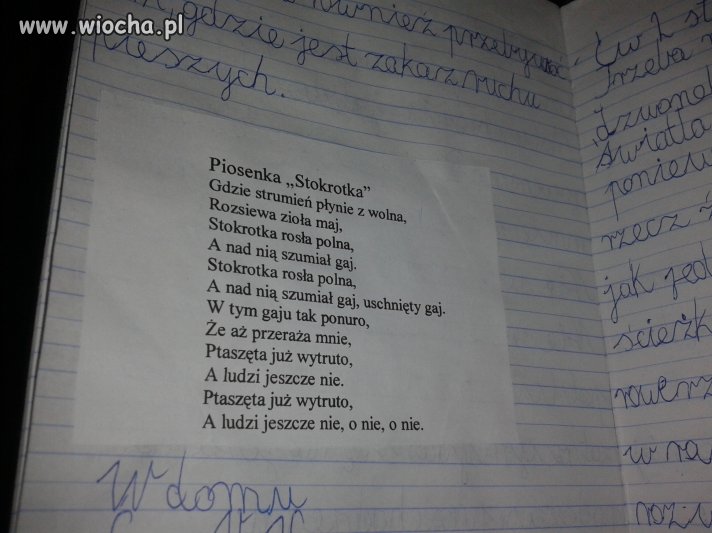 www.wiocha.pl
również przebywać
gdzie jest zakaz ruchu
pieszych.
Piosenka „Stokrotka”
Gdzie strumień płynie z wolna,
Rozsiewa zioła maj,
Stokrotka rosła polna,
A nad nią szumiał gaj.
Stokrotka rosła polna,
A nad nią szumiał gaj, uschnięty gaj.
W tym gaju tak ponuro,
Że aż przeraża mnie,
Ptaszęta już wytruto,
A ludzi jeszcze nie.
Ptaszęta już wytruto,
A ludzi jeszcze nie, o nie, o nie.
W domu
Ćw 2 st
Trzeba
dzwona
światła
poniew
rzecz
jak jed
ścieżk
rowerz
w ra